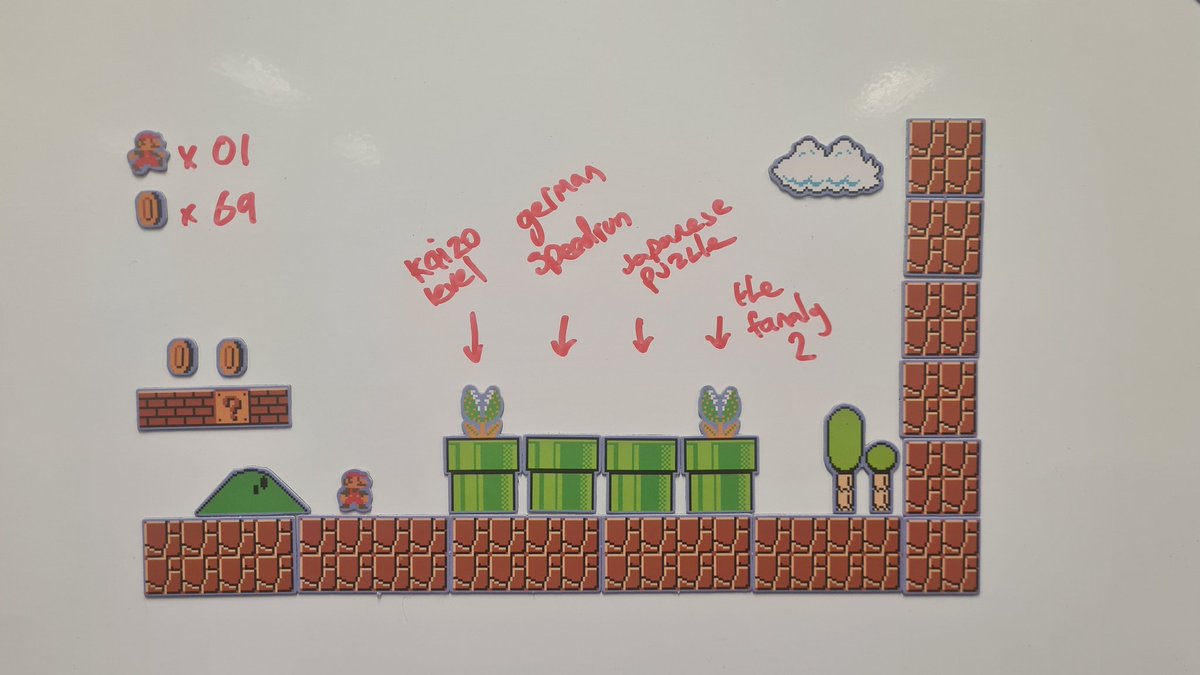 x 01
x 69
kaizo
level
german
speedrun
Japanese
puzzle
the
family
2
?